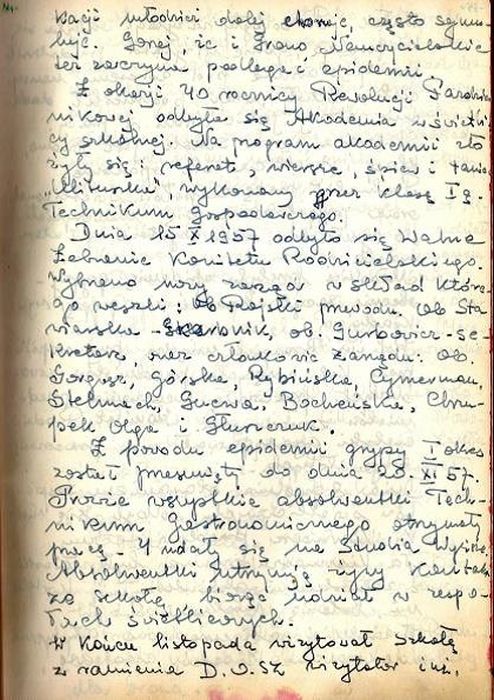 kacji młodzież dalej choruje, często symu-
luje. Gorzej, że i Grono Nauczycielskie
też zaczyna podlegać epidemii.
Z okazji 40 rocznicy Rewolucji Paździer
nikowej odbyła się Akademia w świetli
cy szkolnej. Na program akademii zło
żyły się: referat, wiersze, śpiew i taniec
wykonany przez klasę I g.
Technikum Gospodarczego.
Dnia 15 XI 1957 odbyło się Walne
Zebranie Komitetu Rodzicielskiego.
Wybrano nowy zarząd w skład które
go weszli: Ob Rojski przewodn. Ob Sta
niarska - Skarbnik, ob. Gurbowicz - se-
kretarz, oraz członkowie zarządu: Ob.
Górska, Rybińska, Cymerman,
Stelmach, Gucwa, Bocheńska, Chru-
pek Olga i Głuszczuk.
Z powodu epidemii grypy I okres
został przesunięty do dnia 20. XI 57.
wszystkie absolwentki Tech-
nikum Gastronomicznego otrzymały
pracę - 4 udały się na Studia Wyższe.
Absolwentki utrzymują żywy kontakt
ze szkołą, biorąc udział w zespo-
łach świetlicowych.
W końcu listopada wizytował szkołę
z ramienia D.O.SZ wizytator inż.